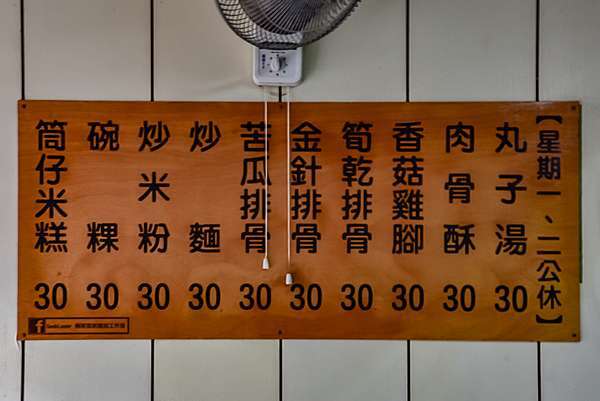 【星期一、二公休】
丸子湯 30
肉骨酥 30
香菇雞腳 30
筍乾排骨 30
金針排骨 30
苦瓜排骨 30
炒麵 30
炒米粉 30
碗粿 30
筒仔米糕 30